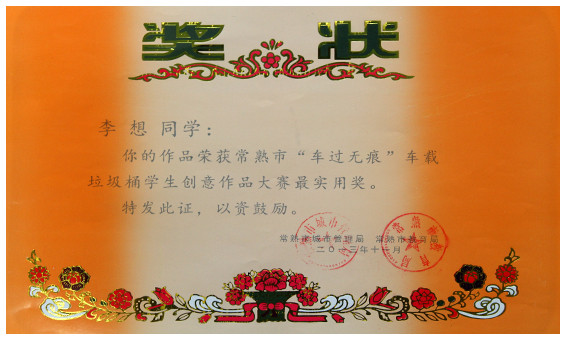 奖 状
李 想 同学:
你的作品荣获常熟市“车过无痕”车载
垃圾桶学生创意作品大赛最实用奖。
特发此证,以资鼓励。
常熟市城市管理局 常熟市教育局
二〇一三年十一月